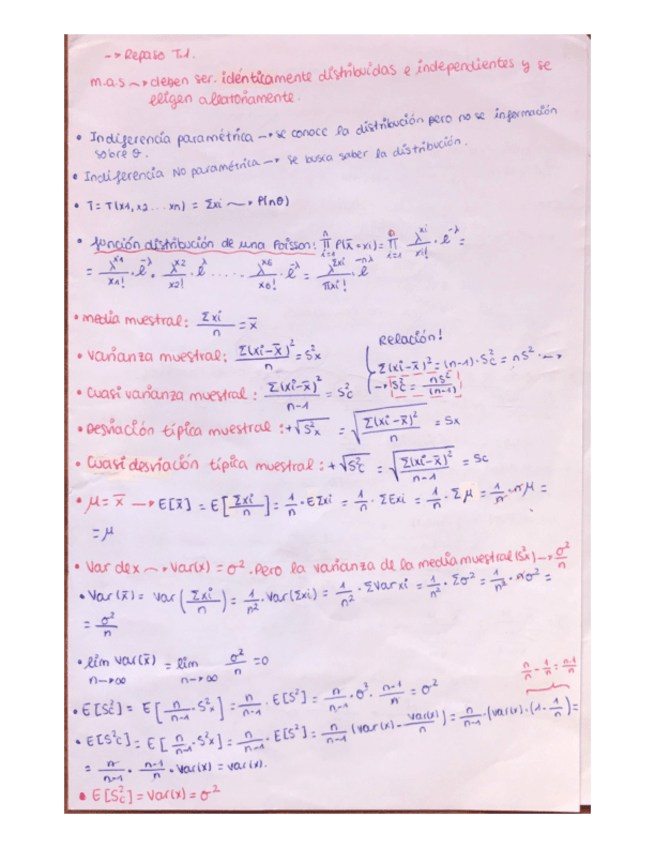 -> Repaso T.1.
m.a.s ~> deben ser idénticamente distribuidas e independientes y se
eligen aleatoriamente.
• Indiferencia paramétrica -> se conoce la distribución pero no se información
sobre θ.
• Indiferencia No paramétrica -> Se busca saber la distribución.
• T = T(x1, x2 ... xn) = Σxi ~> P(nθ)
• función distribución de una Poisson: ∏ⁿᵢ₌₁ P(x̄ = xi) = ∏ᵢ₌₁ λ^xi / xi! · e^-λ =
= λ^x1 / x1! · e^-λ · λ^x2 / x2! · e^-λ · ... · λ^x6 / x6! · e^-λ = λ^Σxi / πxi! · e^-nλ
• media muestral: Σxi / n = x̄
Relación!
• varianza muestral: Σ(xi-x̄)² / n = S²x
Σ(xi-x̄)² = (n-1)·S²c = nS² · ->
-> S²c = nS² / (n-1)
• Cuasi varianza muestral: Σ(xi-x̄)² / n-1 = S²c
• Desviación típica muestral: +√S²x = √(Σ(xi-x̄)² / n) = Sx
• Cuasidesviación típica muestral: +√S²c = √(Σ(xi-x̄)² / n-1) = Sc
• μ = x̄ -> E[x̄] = E[Σxi / n] = 1/n · EΣxi = 1/n · ΣExi = 1/n · Σμ = 1/n · nμ =
= μ
• Var de x ~> Var(x) = σ². Pero la varianza de la media muestral (S²x) -> σ²/n
• Var(x̄) = Var(Σxi / n) = 1/n² · Var(Σxi) = 1/n² · ΣVar xi = 1/n² · Σσ² = 1/n² · nσ² =
= σ²/n
• lim n->∞ Var(x̄) = lim n->∞ σ²/n = 0
n/n - 1/n = n-1/n
• E[S²c] = E[n/n-1 · S²x] = n/n-1 · E[S²] = n/n-1 · σ² · n-1/n = σ²
• E[S²c] = E[n/n-1 · S²x] = n/n-1 · E[S²] = n/n-1 (Var(x) - Var(x)/n) = n/n-1 · (Var(x) · (1 - 1/n) =
= n/n-1 · n-1/n · Var(x) = Var(x).
• E[S²c] = Var(x) = σ²